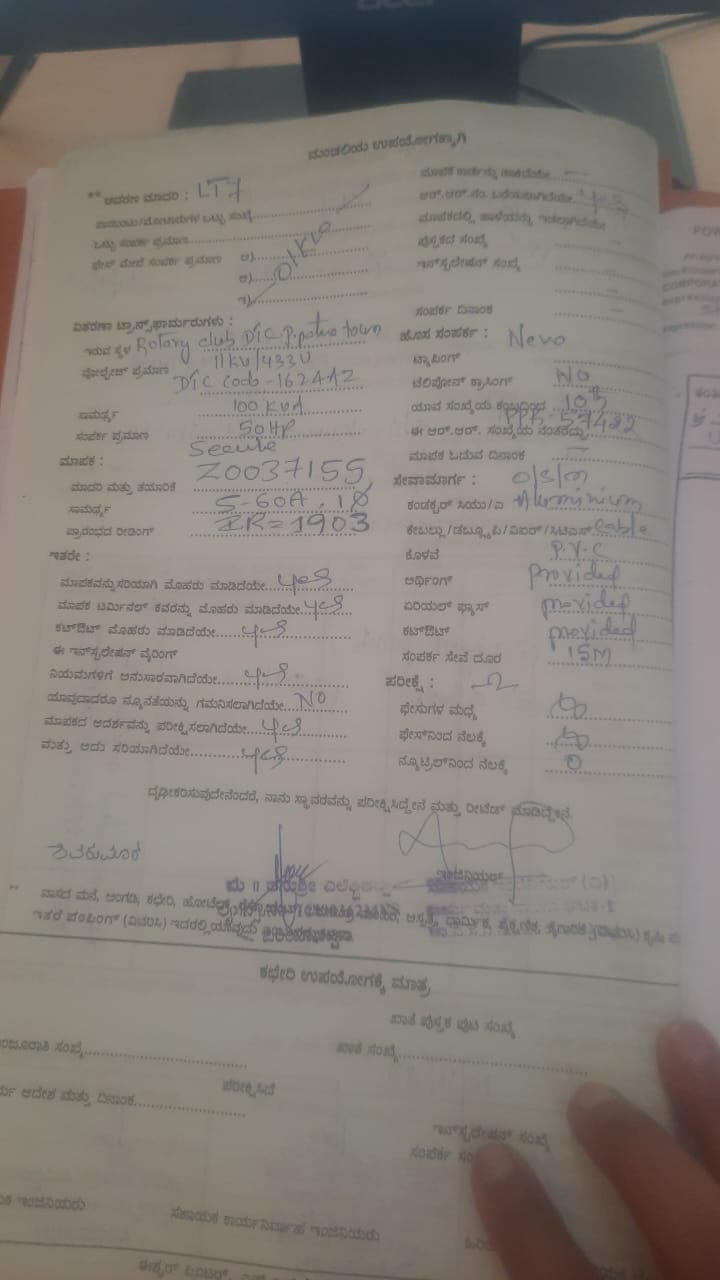 acer
ಮಂಡಲಿಯ ಉಪಯೋಗಕ್ಕಾಗಿ
** ಆವರಣ ಮಾದರಿ : LT7
ಒಟ್ಟು ಸಂಪರ್ಕ ಪ್ರಮಾಣ
ಫೇಸ್ ಮೇಲೆ ಸಂಪರ್ಕ ಪ್ರಮಾಣ ಅ)
ಆ)
ಇ)
ವಿತರಣಾ ಟ್ರಾನ್ಸ್‌ಫಾರ್ಮರುಗಳು :
ಇರುವ ಸ್ಥಳ Rotary club DTC town
ವೋಲ್ಟೇಜ್ ಪ್ರಮಾಣ 11KV/433V
DTC Code-162442
ಸಾಮರ್ಥ್ಯ 100 KVA
ಸಂಪರ್ಕ ಪ್ರಮಾಣ 50HP
ಮಾಪಕ : Secure
ಮಾದರಿ ಮತ್ತು ತಯಾರಿಕೆ Z0037155
ಸಾಮರ್ಥ್ಯ 5-60A, 1Ø
ಪ್ರಾರಂಭದ ರೀಡಿಂಗ್ IR=1903
ಇತರೇ :
ಮಾಪಕವನ್ನು ಸರಿಯಾಗಿ ಮೊಹರು ಮಾಡಿದೆಯೇ yes
ಮಾಪಕ ಟರ್ಮಿನಲ್ ಕವರನ್ನು ಮೊಹರು ಮಾಡಿದೆಯೇ yes
ಕಟ್‌ಔಟ್ ಮೊಹರು ಮಾಡಿದೆಯೇ yes
ಈ ಇನ್‌ಸ್ಟಲೇಷನ್ ವೈರಿಂಗ್
ನಿಯಮಗಳಿಗೆ ಅನುಸಾರವಾಗಿದೆಯೇ yes
ಯಾವುದಾದರೂ ನ್ಯೂನತೆಯನ್ನು ಗಮನಿಸಲಾಗಿದೆಯೇ NO
ಮಾಪಕದ ಆದರ್ಶವನ್ನು ಪರೀಕ್ಷಿಸಲಾಗಿದೆಯೇ yes
ಮತ್ತು ಅದು ಸರಿಯಾಗಿದೆಯೇ yes
ಆರ್.ಆರ್.ನಂ. ಬರೆಯಲಾಗಿದೆಯೇ yes
ಪುಸ್ತಕದ ಸಂಖ್ಯೆ
ಇನ್‌ಸ್ಟಲೇಷನ್ ಸಂಖ್ಯೆ
ಸಂಪರ್ಕ ದಿನಾಂಕ
ಹೊಸ ಸಂಪರ್ಕ :
ಟ್ಯಾಪಿಂಗ್
ಟೆಲಿಫೋನ್ ಕ್ರಾಸಿಂಗ್ NO
ಯಾವ ಸಂಖ್ಯೆಯ ಕಂಬದಿಂದ 10th
ಈ ಆರ್.ಆರ್. ಸಂಖ್ಯೆಯ ನಂತರದ್ದು 57422
ಮಾಪಕ ಓದುವ ದಿನಾಂಕ
ಸೇವಾಮಾರ್ಗ :
ಕಂಡಕ್ಟರ್ ಸಿಯು/ಎ Aluminium
cable
ಕೊಳವೆ P.V.C
ಅರ್ಥಿಂಗ್ provided
ಏರಿಯಲ್ ಫ್ಯೂಸ್ provided
ಕಟ್‌ಔಟ್ provided
ಸಂಪರ್ಕ ಸೇವೆ ದೂರ 15M
ಪರೀಕ್ಷೆ : Ω
ಫೇಸುಗಳ ಮಧ್ಯೆ ∞
ಫೇಸ್‌ನಿಂದ ನೆಲಕ್ಕೆ ∞
ನ್ಯೂಟ್ರಲ್‌ನಿಂದ ನೆಲಕ್ಕೆ 0
ದೃಢೀಕರಿಸುವುದೇನೆಂದರೆ, ನಾನು ಸ್ಥಾವರವನ್ನು ಪರೀಕ್ಷಿಸಿದ್ದೇನೆ ಮತ್ತು ರೀಟೆಡ್ ಮಾಡಿದ್ದೇನೆ.
ಶಿವಕುಮಾರ
** ವಾಸದ ಮನೆ, ಅಂಗಡಿ, ಕಛೇರಿ, ಹೋಟೆಲ್
ಇತರೆ ಪಂಪಿಂಗ್ (ವಿವರಿಸಿ) ಇದರಲ್ಲಿ
ಕಛೇರಿ ಉಪಯೋಗಕ್ಕೆ ಮಾತ್ರ
ಖಾತೆ ಪುಸ್ತಕ ಪುಟ ಸಂಖ್ಯೆ
ಖಾತೆ ಸಂಖ್ಯೆ
ಆದೇಶ ಮತ್ತು ದಿನಾಂಕ
ಪರೀಕ್ಷಿಸಿದೆ
ಇನ್‌ಸ್ಟಲೇಷನ್ ಸಂಖ್ಯೆ
ಸಂಪರ್ಕ
ಸಹಾಯಕ ಕಾರ್ಯನಿರ್ವಾಹಕ ಇಂಜಿನಿಯರು